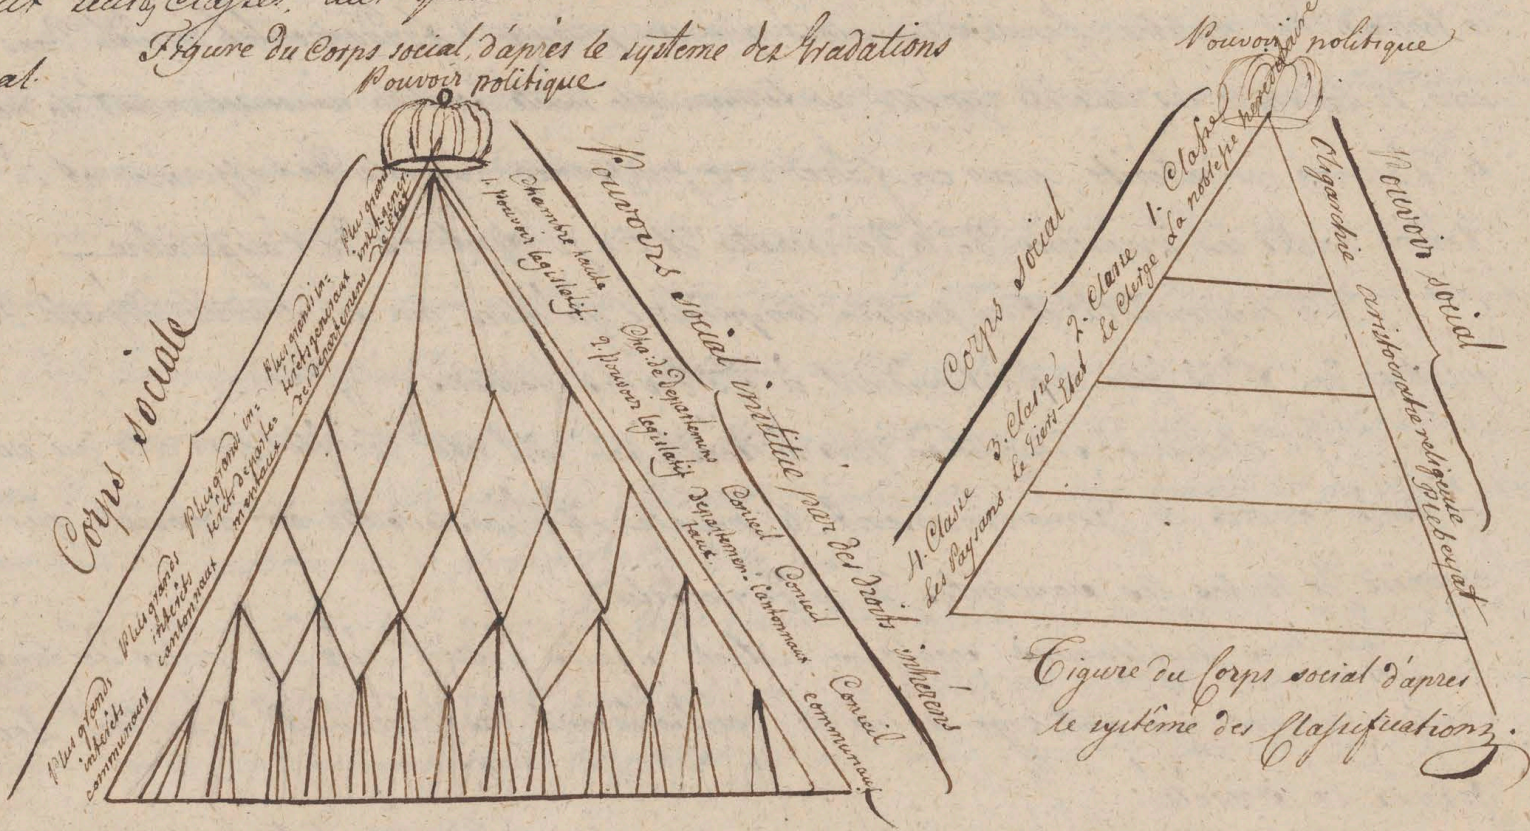 Figure du Corps social, d'après le système des Gradations
al.
Pouvoir politique
Corps sociale
Plus grands intérêts de l'état
Plus grands in=
térêts generaux
des departemens
Plus grands in=
térêts departe
mentaux
Plus grands
intérêts
cantonnaux
Plus grands
intérêts
communaux
Pouvoirs social institué par des droits inhérens
Chambre haute
1. pouvoir legislatif.
Cha: de departemens
2. pouvoir legislatif
Conseil
departemen:
taux.
Conseil
Cantonnaux
Conseil
communaux
Pouvoir politique
Corps social
1. Classe
La noblesse héréditaire
2. Classe
Le Clergé
3. Classe
Le Tiers-Etat
4. Classe
Les Paysans
Pouvoir social
Oligarchie aristocratie religieuse
Plebeyat
Figure du Corps social d'après
le système des Classifications.